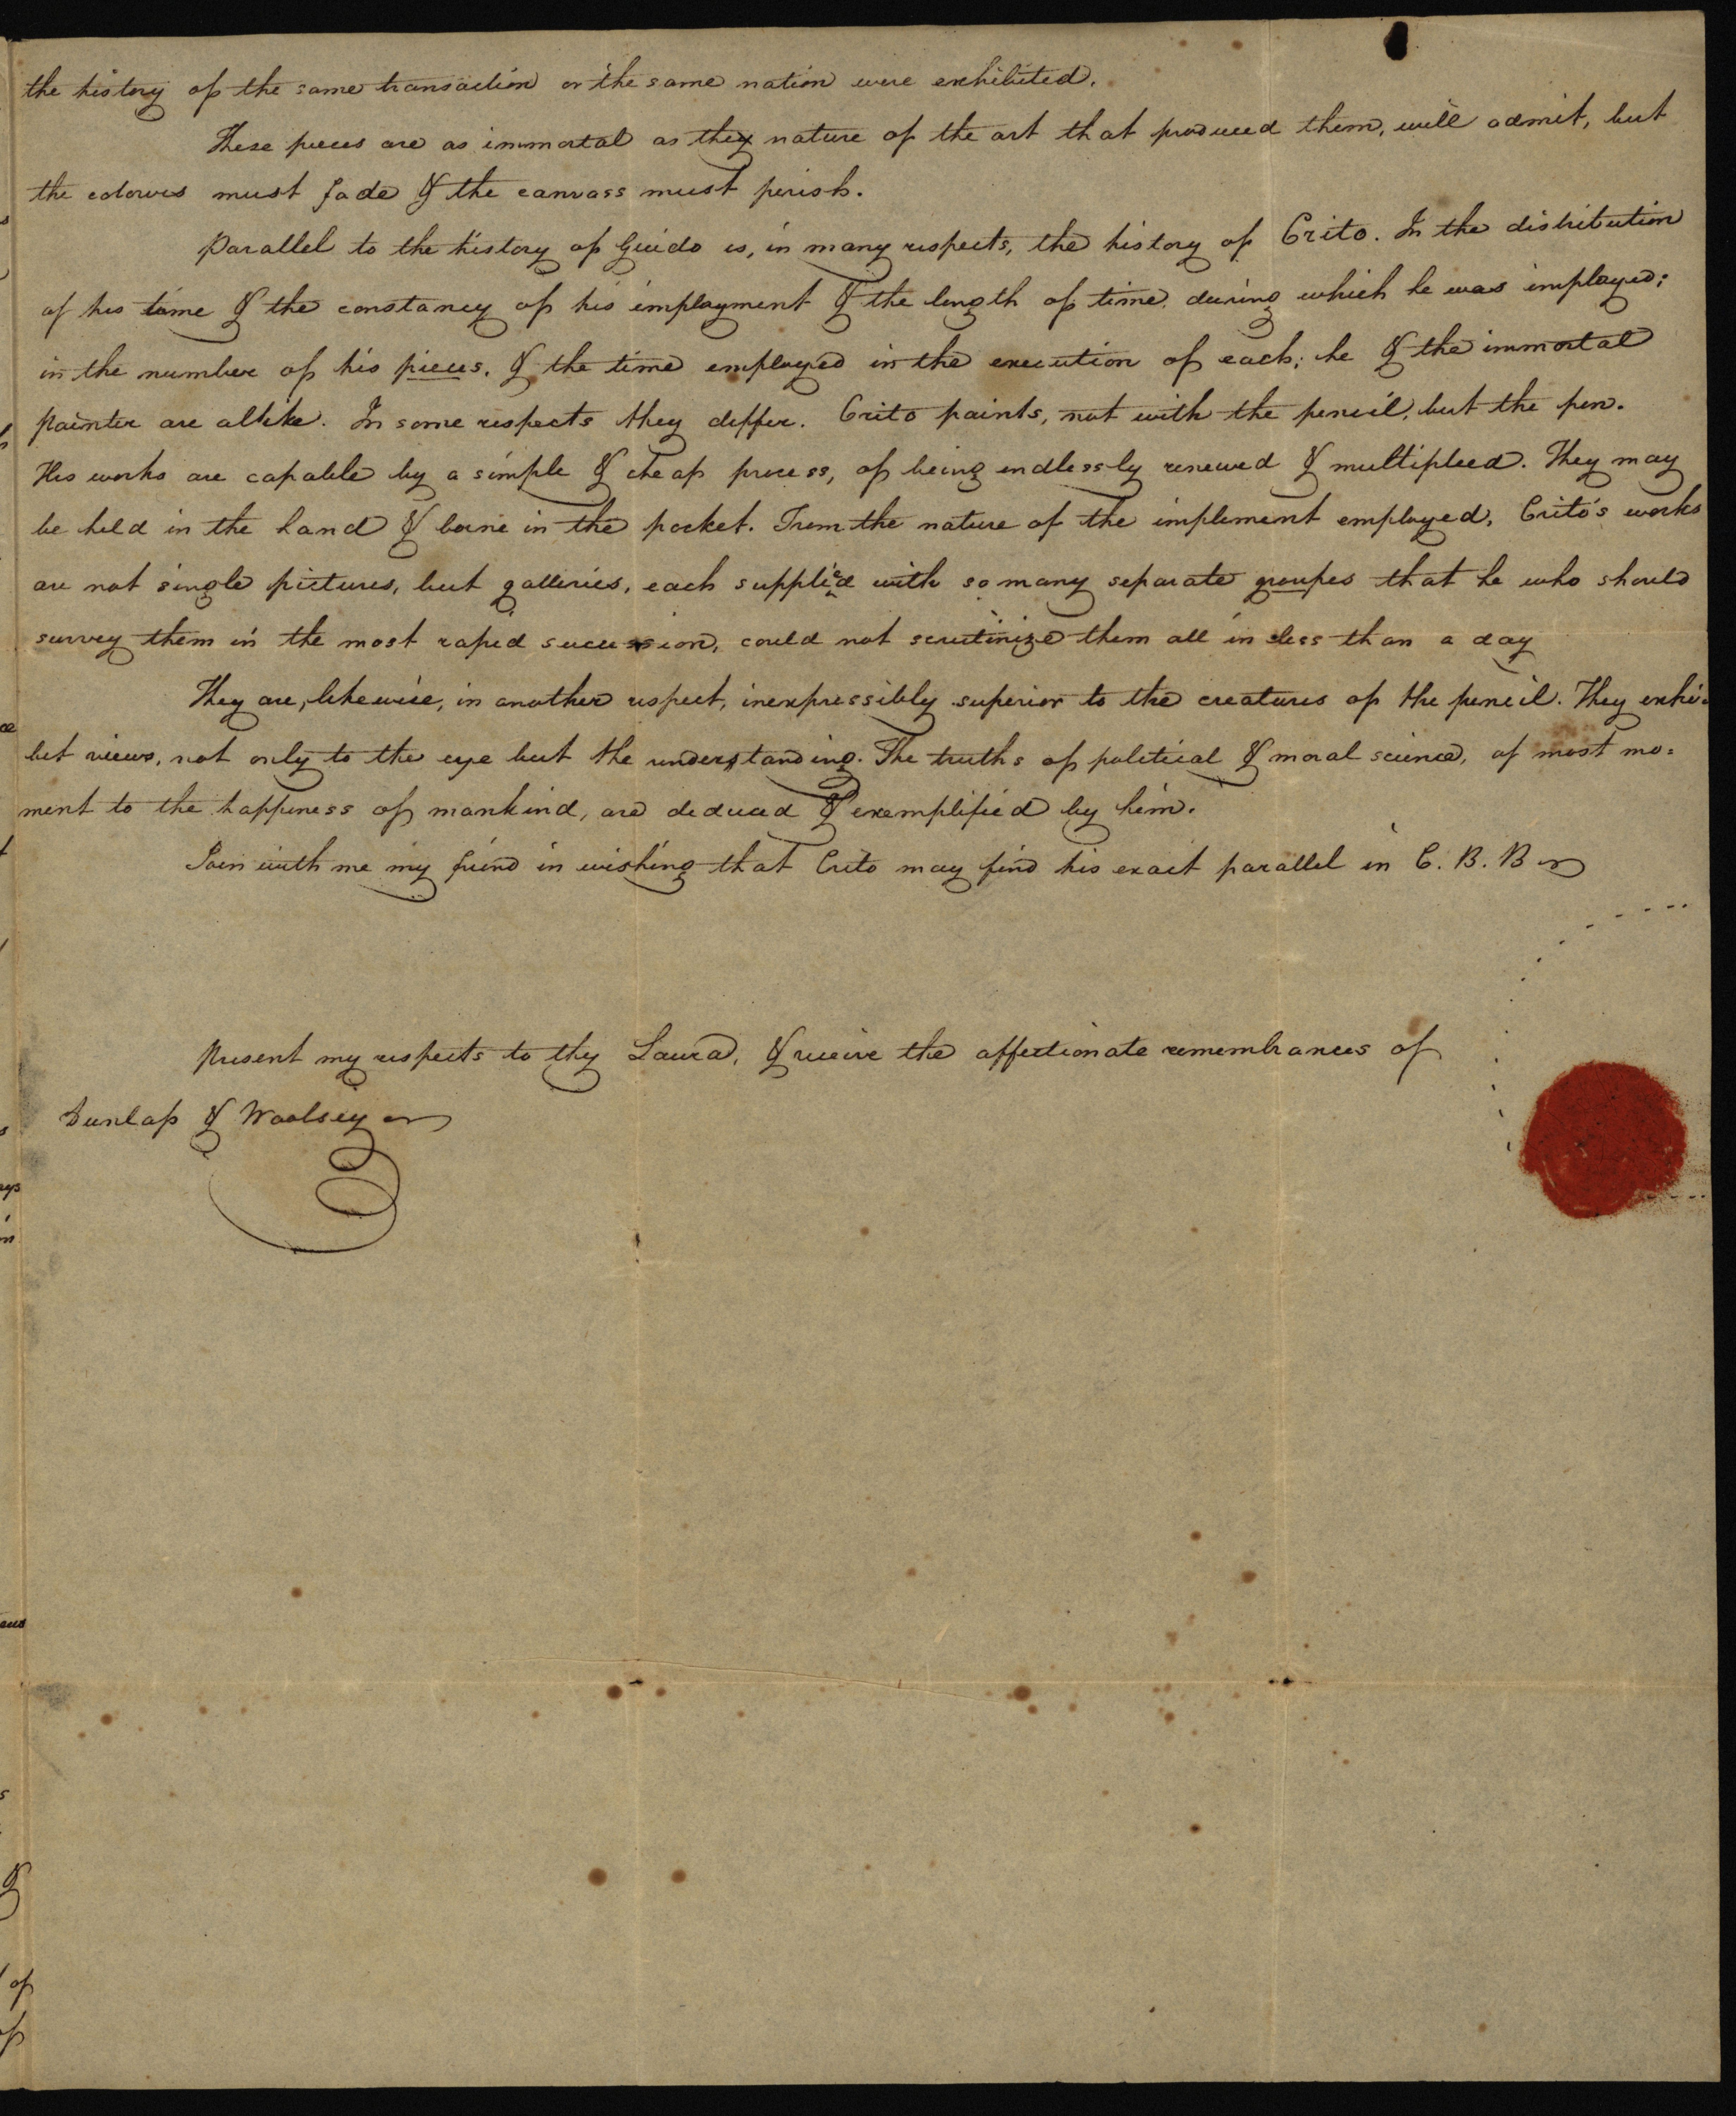 the history of the same transaction or the same nation were exhibited.
These pieces are as immortal as they nature of the art that produced them, will admit, but
the colours must fade & the canvass must perish.
Parallel to the history of Guido is, in many respects, the history of Crito. In the distribution
of his time & the constancy of his imployment & the length of time, during which he was imployed;
in the number of his pieces, & the time employed in the execution of each; he & the immortal
painter are alike. In some respects they differ. Crito paints, not with the pencil, but the pen.
His works are capable by a simple & cheap process, of being endlessly renewed & multiplied. They may
be held in the hand & borne in the pocket. From the nature of the implement employed, Crito's works
are not single pictures, but galleries, each supplied with so many separate groupes that he who should
survey them in the most rapid succession, could not scrutinize them all in less than a day
They are, likewise, in another respect, inexpressibly superior to the creatures of the pencil. They exhi-
bit views, not only to the eye but the understanding. The truths of political & moral science, of most mo=
ment to the happiness of mankind, are deduced & exemplified by him.
Join with me my friend in wishing that Crito may find his exact parallel in C. B. B
Present my respects to thy Laura, & receive the affectionate remembrances of
Dunlap & Woolsey